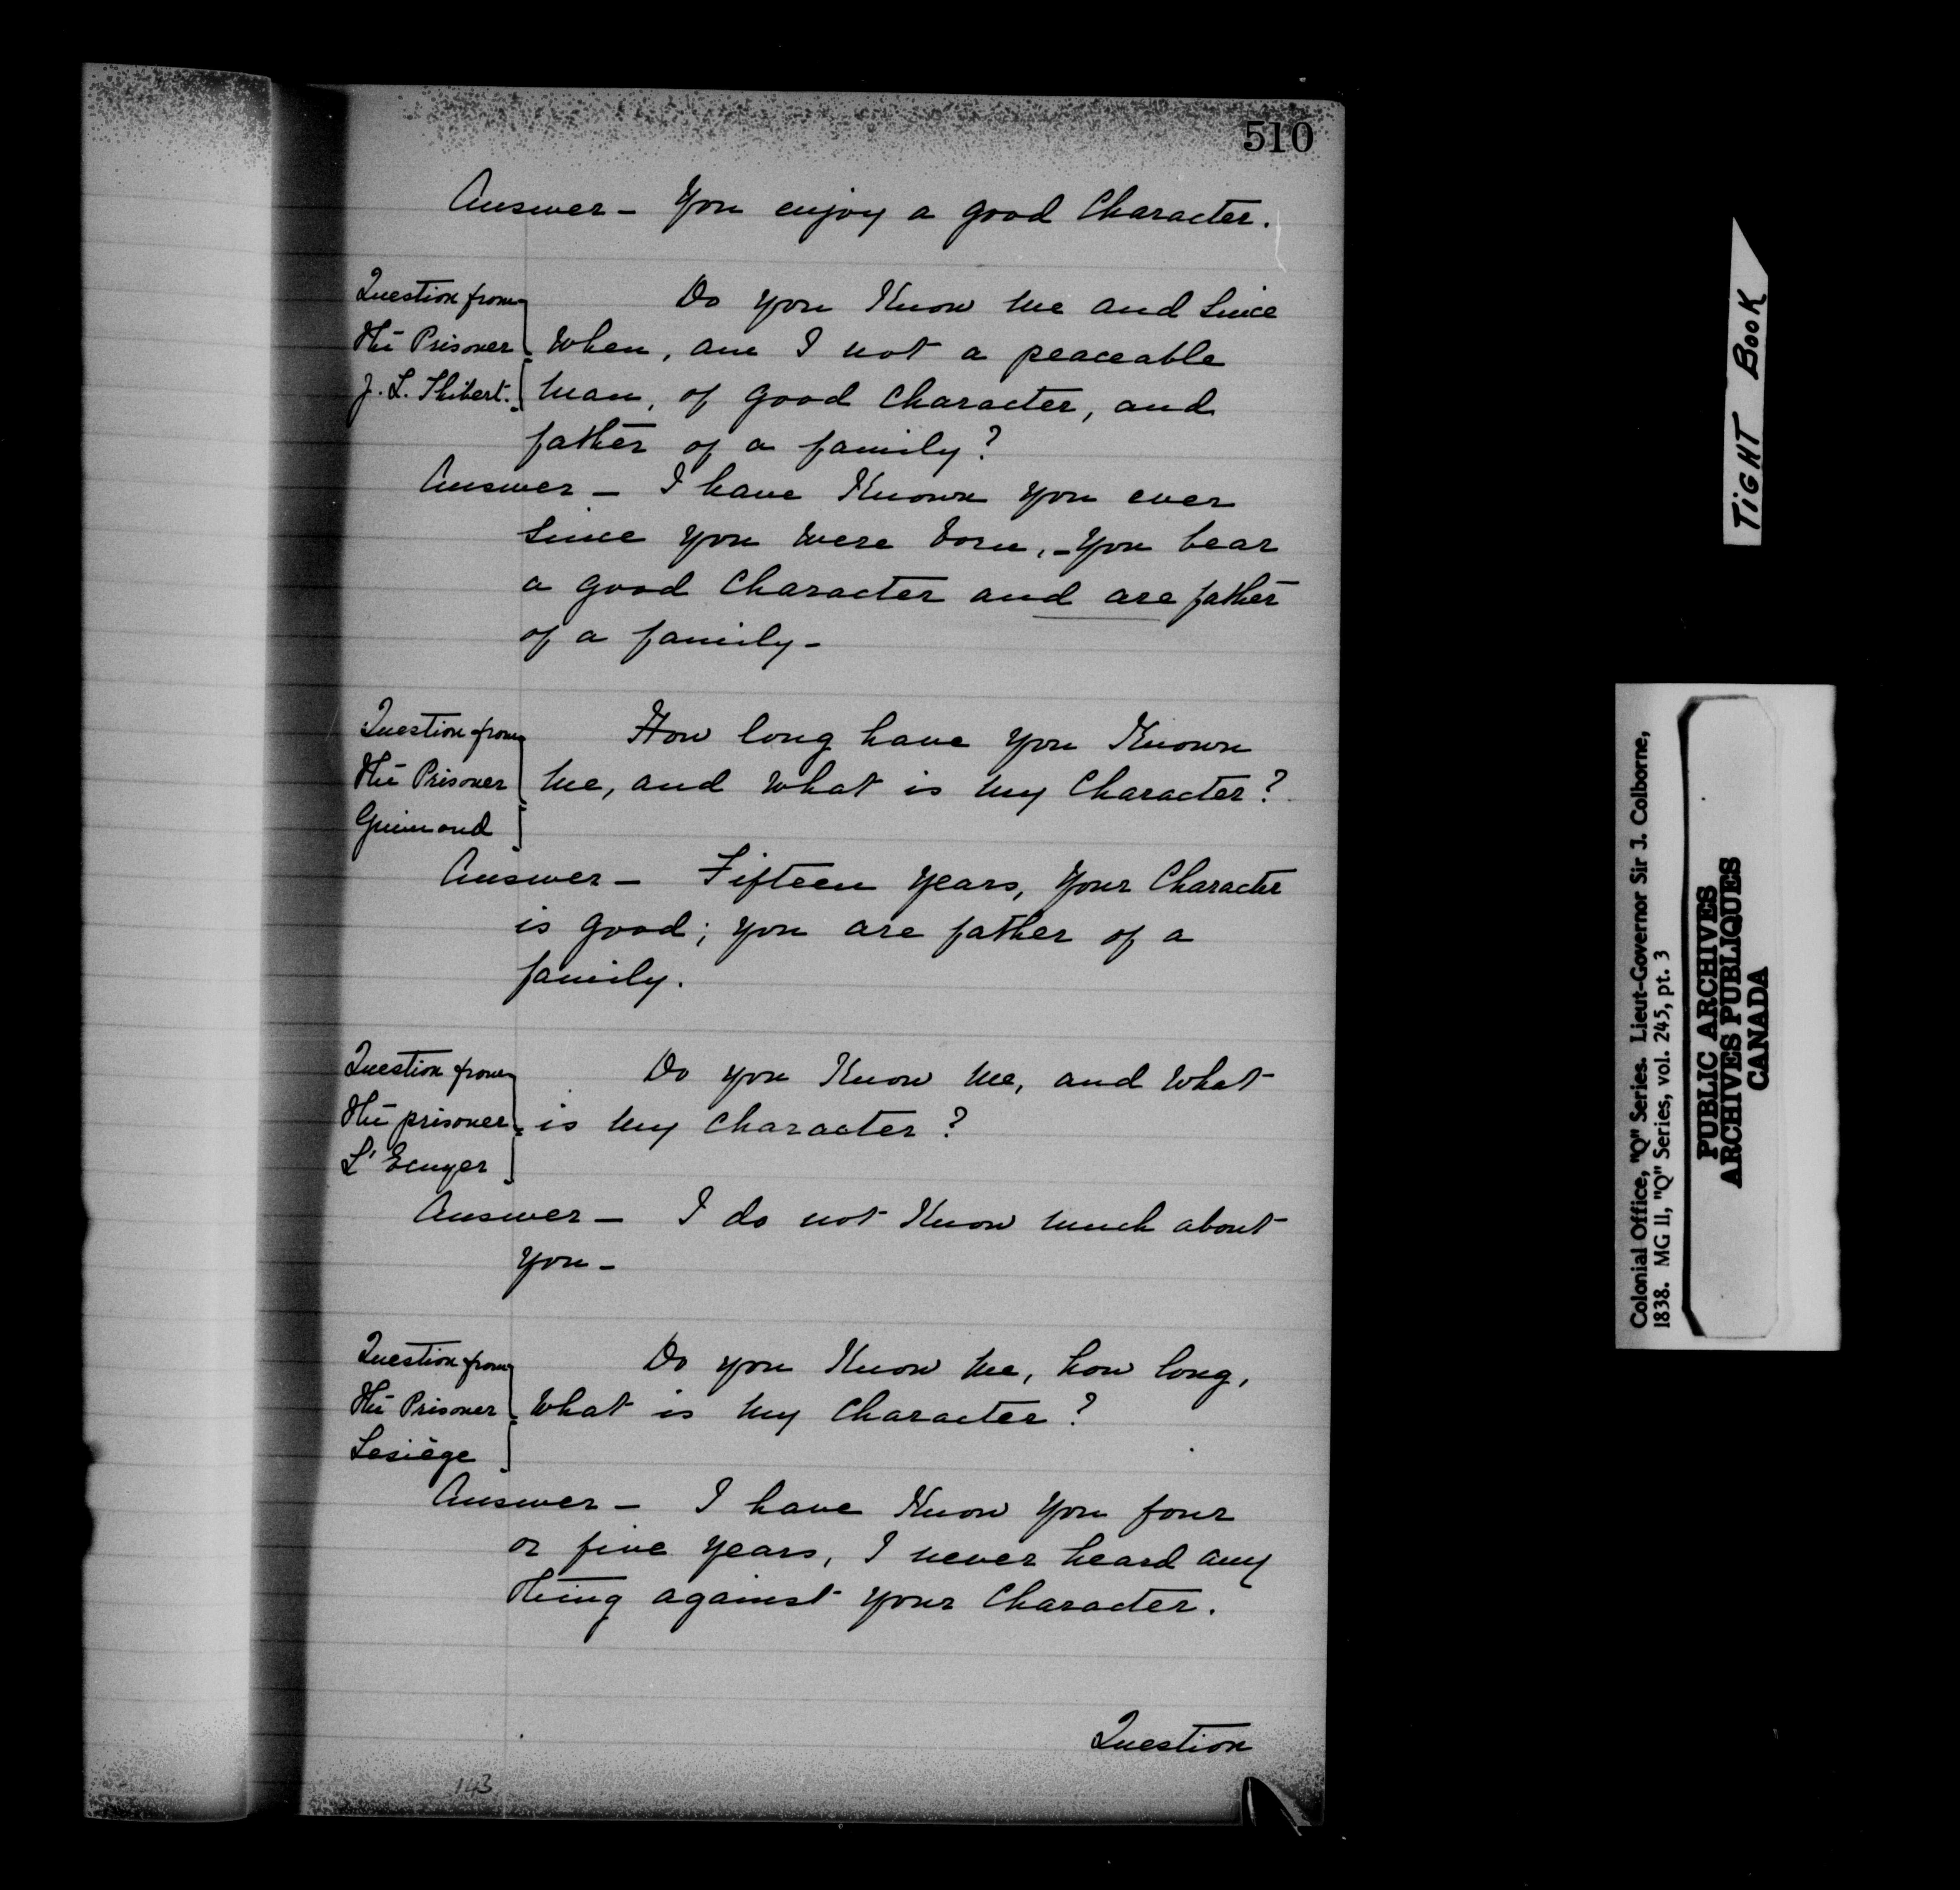 510
Answer - You enjoy a good Character.
Question from
the Prisoner
J. L. Thibert.
Do you Know me and since
when, am I not a peaceable
man, of good Character, and
father of a family?
Answer - I have Known you ever
since you were born, - you bear
a good Character and are father
of a family -
Question from
the Prisoner
Guimond
How long have you Known
me, and what is my Character?
Answer - Fifteen years, your Character
is good; you are father of a
family.
Question from
the prisoner
L'Ecuyer
Do you Know me, and what
is my Character?
Answer - I do not Know much about
you -
Question from
the Prisoner
Lesiège
Do you Know me, how long,
what is my Character?
Answer - I have Know you four
or five years, I never heard any
thing against your Character.
Question
143
TiGHT BOOK
Colonial Office, "Q" Series. Lieut-Governor Sir J. Colborne,
1838. MG 11, "Q" Series, vol. 245, pt. 3
PUBLIC ARCHIVES
ARCHIVES PUBLIQUES
CANADA